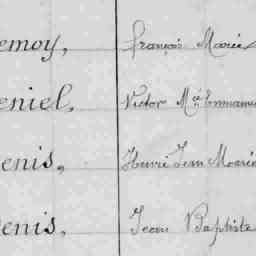 emoy, françois Marie
eniel, Victor M.ce Emmanue
enis, Henri Jean Marie
enis, Jean Baptiste